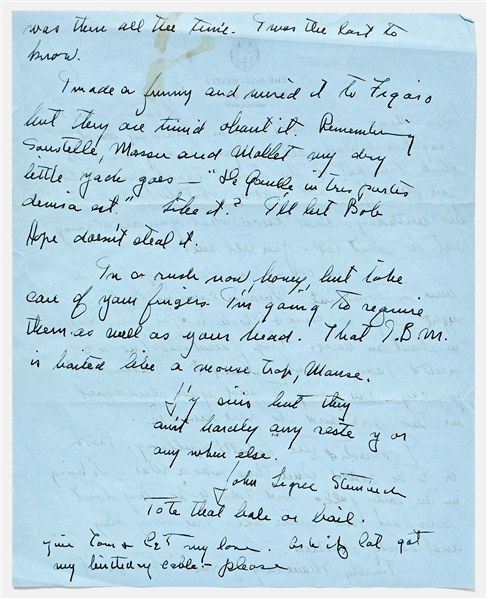 was there all the time. I was the last to
know.
I made a funny and wired it to Figaro
but they are timid about it. Remembering
Soustelle, Massu and Mollet my dry
little yack goes — "De Gaulle in tres partes
divisa est." Like it? I'll bet Bob
Hope doesn't steal it.
In a rush now, honey, but take
care of your fingers. I'm going to require
them as well as your head. That I.B.M.
is baited like a mouse trap, Mause.
J'y suis but they
ain't hardly any reste y or
any where else.
John Legree Steinbeck
Tote that bale or bail.
give Tom & my love. Ask if Cat got
my birthday cable — please
THE DORCHESTER